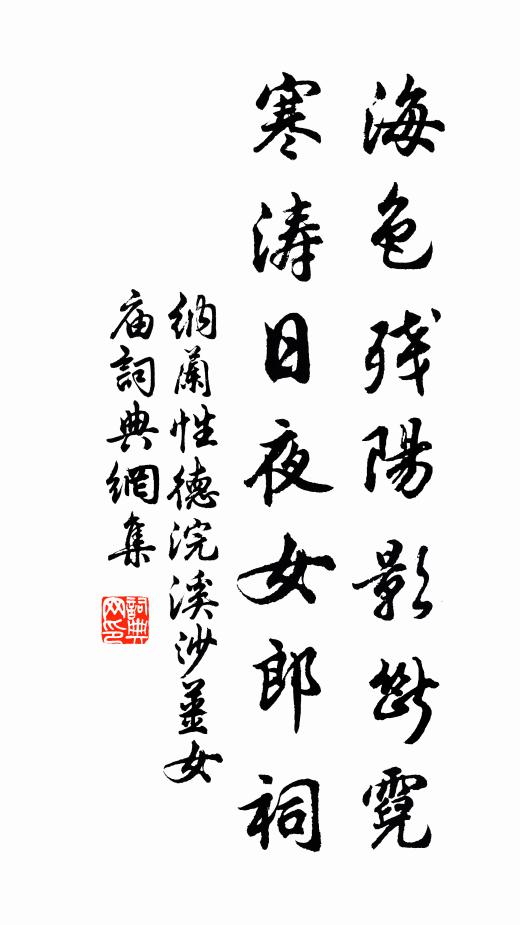 海色残陽影斷霓
寒涛日夜女郎祠
納蘭性德浣溪沙薑女
庙詞典網集
詞典网印